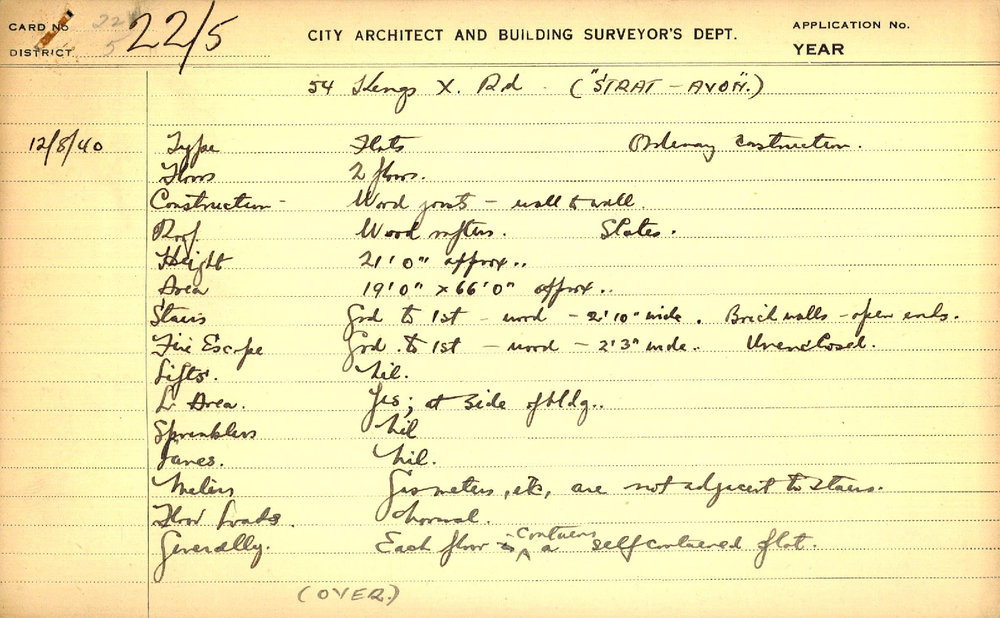 CARD No 22/5 CITY ARCHITECT AND BUILDING SURVEYOR'S DEPT. APPLICATION No.
DISTRICT YEAR
54 Kings X. Rd. ("STRAT-AVON".)
12/8/40 Type Flats Ordinary construction.
Floors 2 floors.
Construction - Wood joists - wall to wall.
Roof. Wood rafters. Slates.
Height 21'0" approx..
Area 19'0" x 66'0" approx..
Stairs Grd to 1st - wood - 2'10" wide. Brick walls - open ends.
Fire Escape Grd. to 1st - wood - 2'3" wide.. Unenclosed.
Lifts. Nil.
L. Area. Yes; at side of bldg..
Sprinklers Nil
Lanes. Nil.
Meters Gas meters, etc, are not adjacent to stairs.
Floor Loads. Normal.
Generally. Each floor contains a selfcontained flat.
(OVER.)